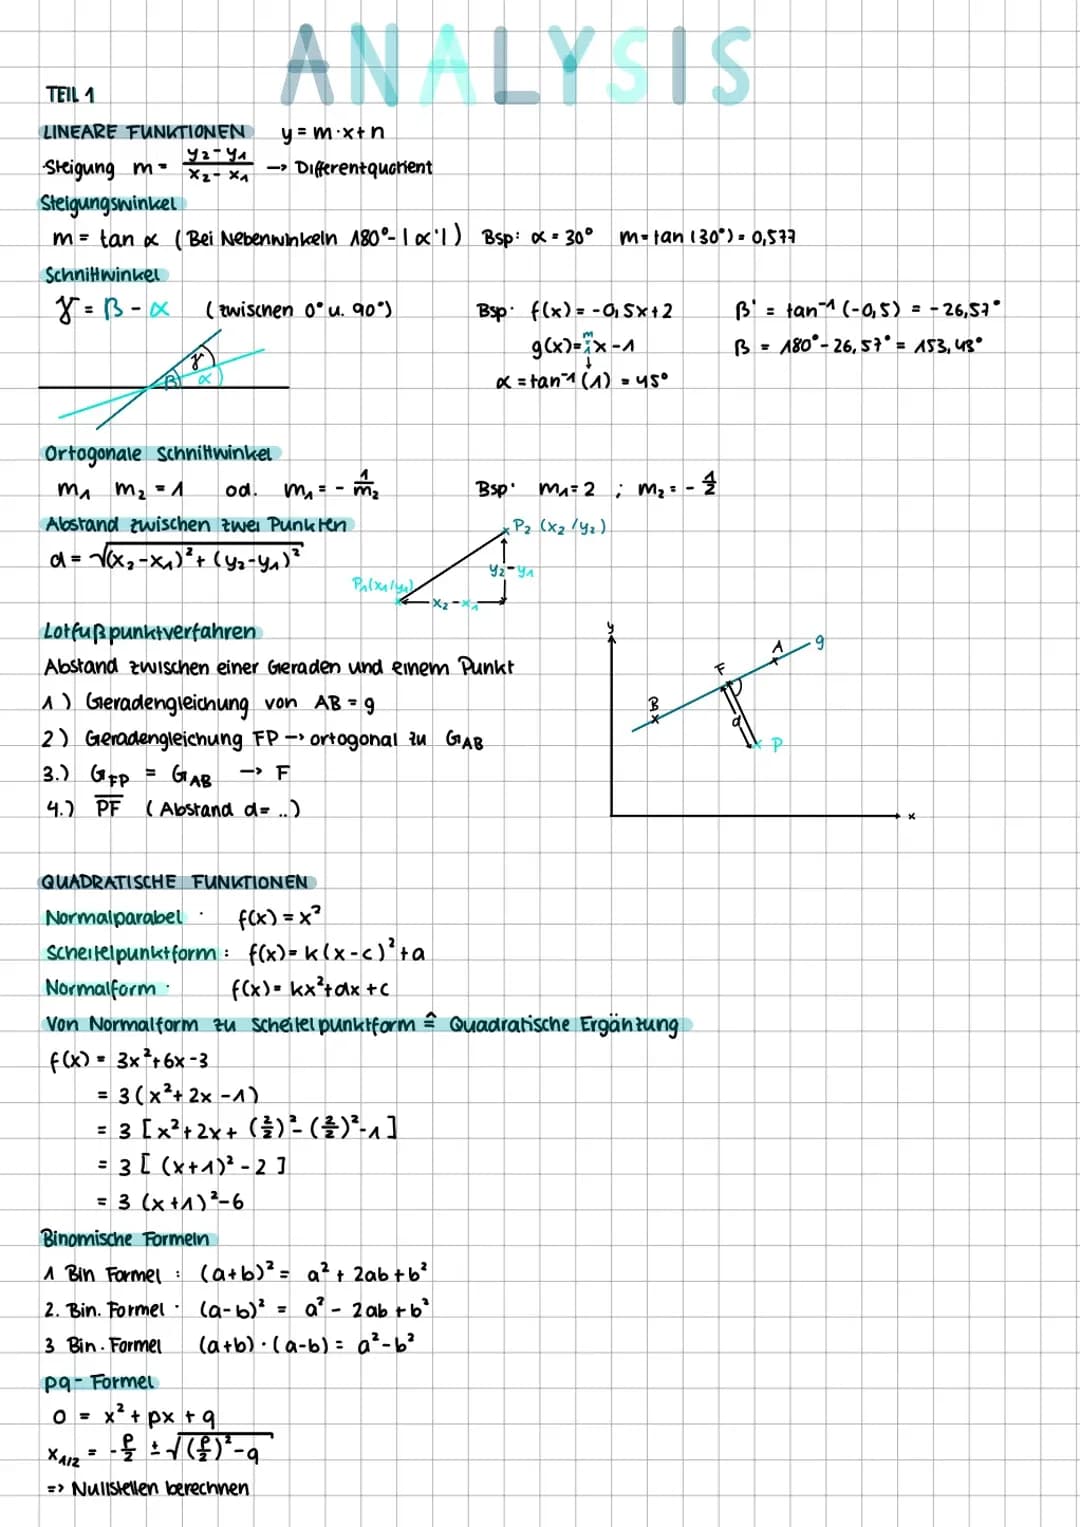 ANALYSIS
TEIL 1
LINEARE FUNKTIONEN y = m·x+n
Steigung m = (y₂-y₁)/(x₂-x₁) → Differentquotient
Steigungswinkel
m = tan α (Bei Nebenwinkeln 180°-|α'|) Bsp: α = 30° m = tan (30°) = 0,577
Schnittwinkel
γ = β - α (zwischen 0° u. 90°) Bsp: f(x) = -0,5x+2 β' = tan⁻¹ (-0,5) = -26,57°
g(x)= 1x -1 β = 180° - 26,57° = 153,43°
m
γ
β α
α = tan⁻¹ (1) = 45°
Ortogonale Schnittwinkel
m₁ m₂ = 1 od. m₁ = - 1/m₂ Bsp: m₁ = 2 ; m₂ = - 1/2
Abstand zwischen zwei Punkten
P₂ (x₂/y₂)
d = √(x₂-x₁)² + (y₂-y₁)²
y₂-y₁
P₁(x₁/y₁)
x₂-x₁
Lotfußpunktverfahren
Abstand zwischen einer Geraden und einem Punkt
1) Geradengleichung von AB = g
2) Geradengleichung FP → ortogonal zu G_AB
3.) G_FP = G_AB → F
4.) PF (Abstand d= ..)
y
g
A
F
B
d
P
x
QUADRATISCHE FUNKTIONEN
Normalparabel : f(x) = x²
Scheitelpunktform : f(x) = k(x-c)²+a
Normalform : f(x) = kx²+dx+c
Von Normalform zu Scheitelpunktform ≙ Quadratische Ergänzung
f(x) = 3x²+6x-3
= 3(x²+2x-1)
= 3 [x²+2x+ (2/2)²-(2/2)²-1]
= 3 [ (x+1)² - 2 ]
= 3 (x+1)²-6
Binomische Formeln
1 Bin Formel : (a+b)² = a² + 2ab + b²
2. Bin. Formel : (a-b)² = a² - 2ab + b²
3 Bin. Formel (a+b)·(a-b) = a²-b²
pq- Formel
0 = x² + px + q
x₁/₂ = -p/2 ± √(p/2)²-q
=> Nullstellen berechnen